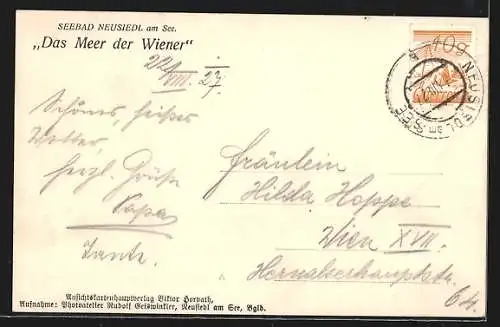 SEEBAD NEUSIEDL am See.
„Das Meer der Wiener"
22/VIII. 27.
10g
NEUSIEDL am SEE
Schönes, heißes
Wetter,
herzl. Grüße
Papa
Tante.
Fräulein
Hilda Hoppe
Wien XVII.
Hernalserhauptstr.
64.
Ansichtskartenhauptverlag Viktor Horvath,
Aufnahme: Photoatelier Rudolf Geiswinkler, Neusiedl am See, Bgld.